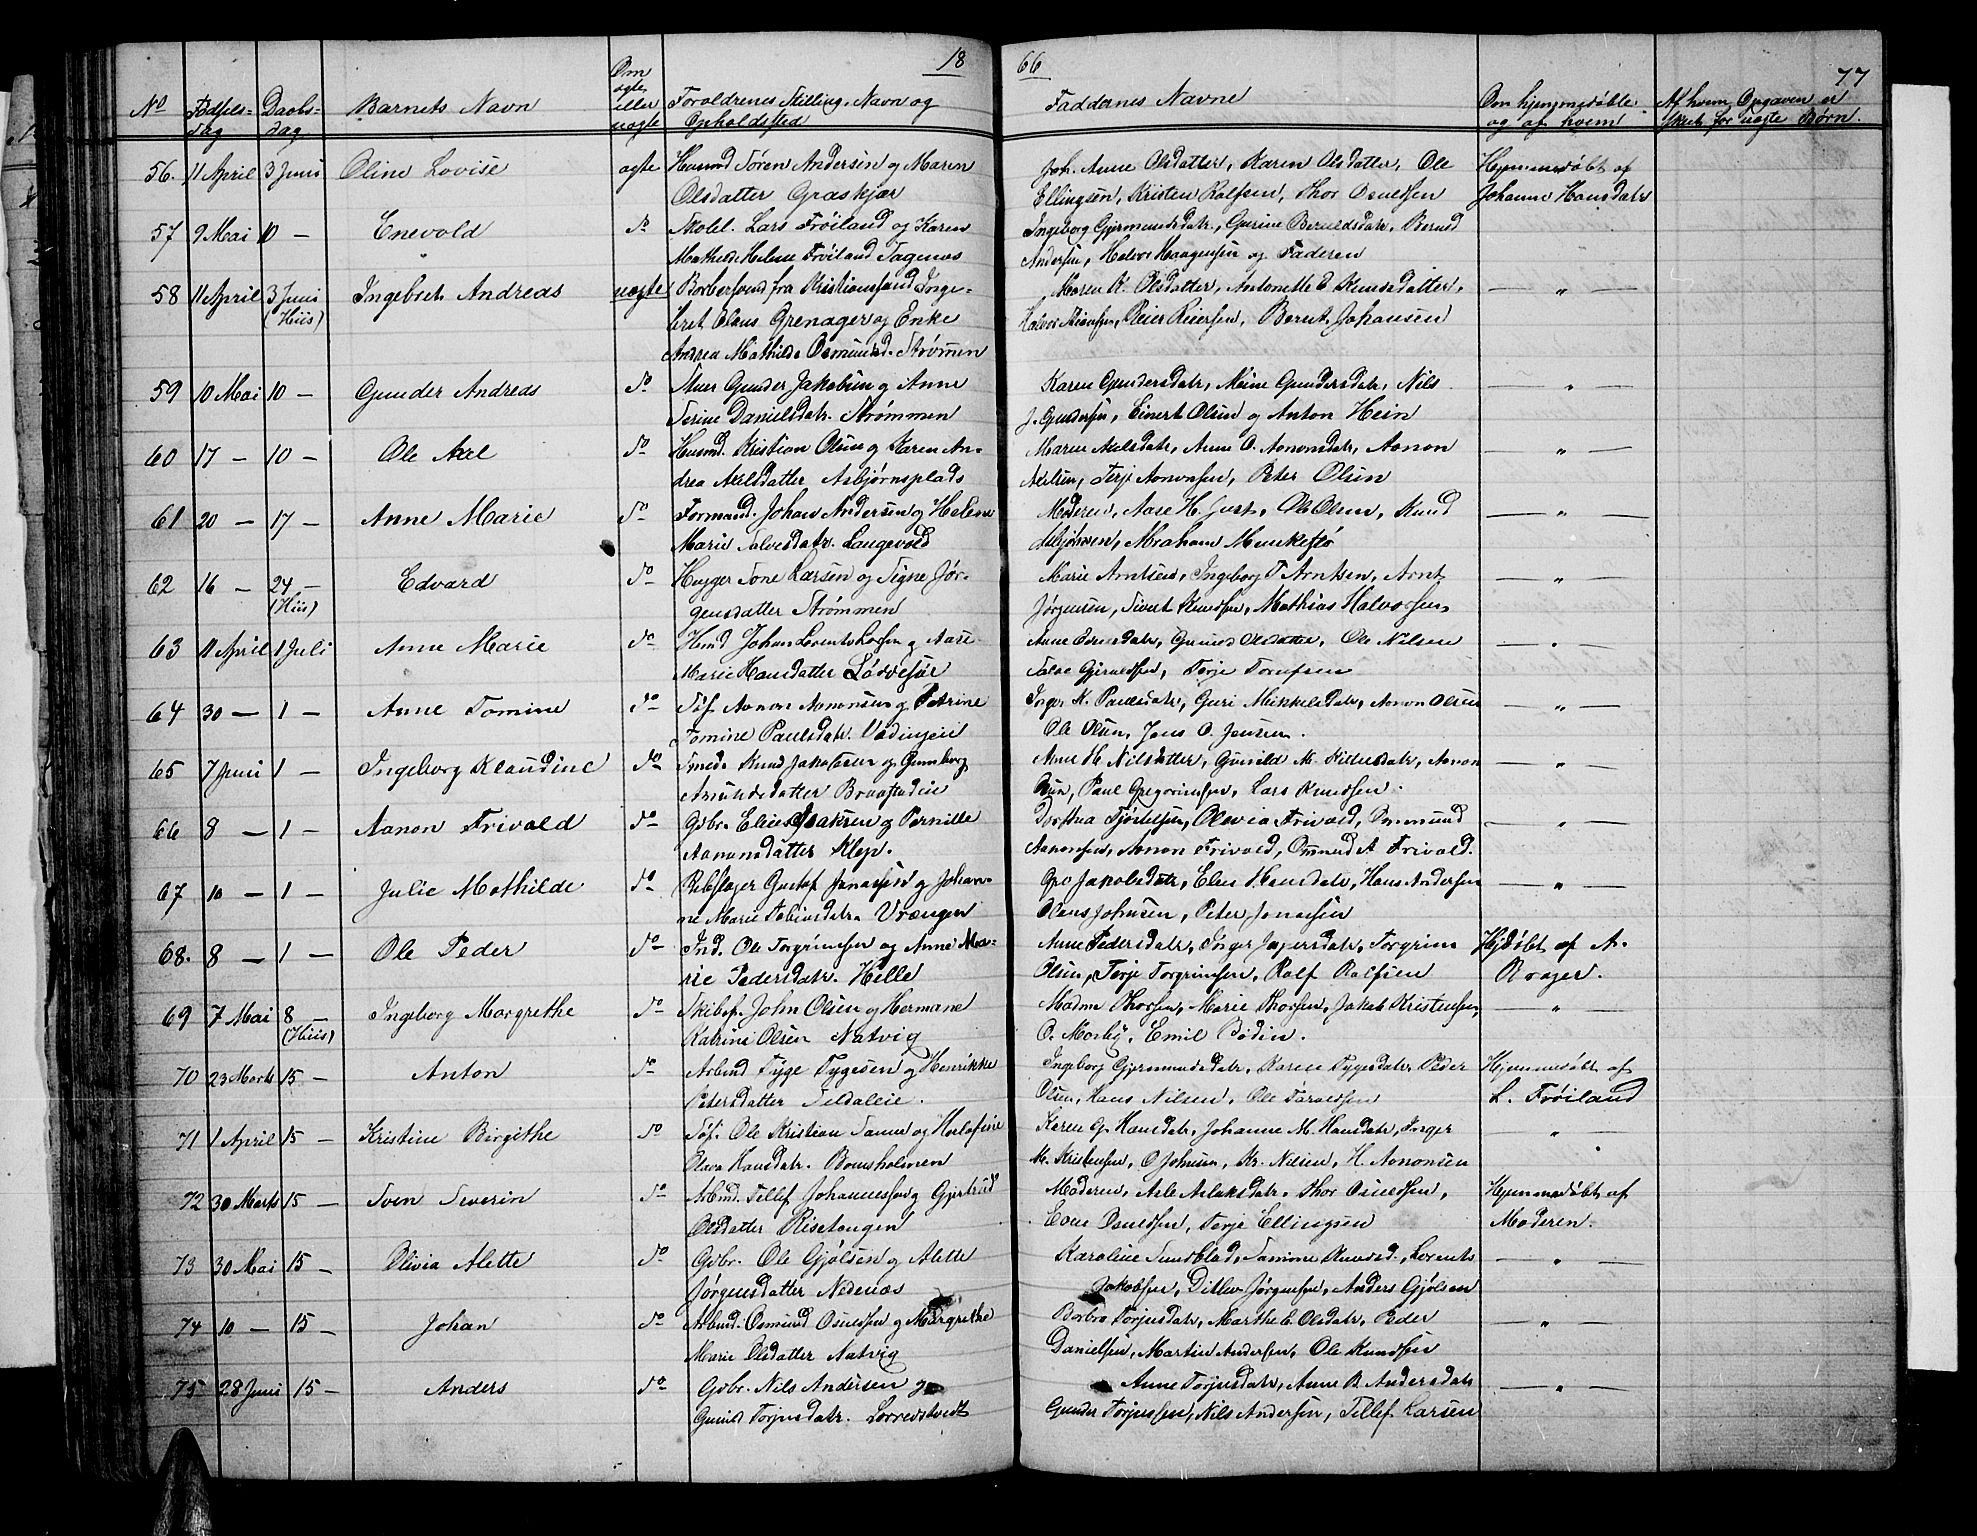 18
66
77
No
Fødsels-
dag
Daabs-
dag
Barnets Navn
Om
ægte
eller
uægte
Forældrenes Stilling, Navn og
Opholdssted
Faddernes Navne
Om hjemmedøbte
og af hvem
Af hvem Opgaven er
skeet for uægte Børn.
56. 11 April 3 Juni Oline Lovise ægte Husmd Søren Andersen og Maren
Olsdatter Græskjær
Joh. Anne Olsdatter, Karen Olsdatter, Ole
Ellingsen, Kristen Rolfsen, Thor Osuldsen
Hjemmedøbt af
Johanne Hansdatr
57 9 Mai 10 — Enevold do Lars Frøiland og Karen
Mathilde Helene Frøiland
Ingeborg Gjermundsdatr, Gurine Beruldsdatr, Berud
Andersen, Halvor Haagensen og Faderen
58 11 April 3 Juni
(Huis)
Ingebret Andreas uægte fra Kristiansand Inge-
bret Olaus Grenager og Enke
Andrea Mathilde Osmunsd. Strømmen
Maren K. Olsdatter, Antonette E Knudsdatter,
Reier Reiersen, Berut Johansen
— " —
59 10 Mai 10 — Gunder Andreas do Gunder Jakobsen og Anne
Serine Danielsdatr. Strømmen
Karen Gundersdatr, Meine Gundersdatr, Nils
J. Gundersen, Einert Olsen og Anton Hein
— " —
60 17 — 10 — Ole Axel do Husmd. Kristian Olsen og Karen An-
drea Axelsdatter Asbjørnsplads
Maren Axelsdatr, Anne O. Aanonsdatr, Aanon
Axelsen, Terje Aanonsen, Peter Olsen
— " —
61 20 — 17 — Anne Marie do Formand. Johan Andersen og Helene
Marie Salvesdatr. Langevold
Moderen, Aase H. Just, Ole Olsen, Knud
Abraham Munkeflø
— " —
62 16 — 24 —
(Huis)
Edvard do Hugger Tone Larsen og Signe Jør-
gensdatter Strømmen
Marie Arntsen, Ingeborg T Arntsen, Arnt
Jørgensen, Sivert Knudsen, Mathias Halvorsen
— " —
63 11 April 1 Juli Anne Marie do Johan og Aase
Marie Hansdatter Løddesør
Anne Evensdatr, Gunild Olsdatter, Ole Nilsen
Terje
— " —
64 30 — 1 — Anne Tomine do Søf. Aanon Aanonsen og Petrine
Tomine Paulsdatr.
Inger K. Paulsdatr, Guri Mikkelsdatr, Aanon Olsen
Ole Olsen, Jens O. Jensen.
— " —
65 7 Juni 1 — Ingeborg Klaudine do Smed. Knud Jakobsen og Gunnborg
Amundsdatter
Anne H. Nilsdatter, Gunild M. Aanon
Olsen, Paul Gregoriussen, Lars Knudsen.
— " —
66 8 — 1 — Aanon Frivold do Gdbr. Elias Isaksen og Pernille
Aanonsdatter Klep.
Olevia Frivold, Osmund
Aanonsen, Aanon Frivold, Osmund A Frivold.
— " —
67 10 — 1 — Julie Mathilde do Rebslager Gustaf Jonassen og Johan-
ne Marie Tobiasdatr. Vrængen
Gro Jakobsdatr, Elen Hansdatr, Hans Andersen
Olaus Johnsen, Peter Jonassen
— " —
68. 8 — 1 — Ole Peder do Ind. Ole Torgrimsen og Anne Ma-
rie Pedersdatr. Hille
Anne Pedersdatr, Inger Jegersdatr, Torgrim
Olsen, Terje Torgrimsen, Rolf Rolfsen
Hjdøbt af A.
Roager.
69 7 Mai 8 —
(Huis)
Ingeborg Margrethe do Skibsf. John Olsen og Hermane
Katrine Olsen Natvig
Madm Thorsen, Marie Thorsen, Jakob Kristensen,
O. Morby, Emil Bødin.
— " —
70 23 Marts 15 — Anton do Arbmd Tyge Tygesen og Henrikke
Petersdatter Sildaleie.
Ingeborg Gjermundsdatr, Karen Tygesdatr, Peder
Olsen, Hans Nilsen, Ole Taraldsen
Hjemmedøbt af
L. Frøiland
71 1 April 15 — Kristine Birgithe do Søf. Ole Kristian
Olava Hansdatr. Bomsholmen
Karen G. Hansdatr, Johanne M. Hansdatr, Inger
M. Kristensen, O Johnsen, Kr. Nilsen, H. Aanonsen
— " —
72 30 Marts 15 — Sven Severin do Arbmd. Tellef Johannessen og Gjertrud
Olsdatter Risetangen
Moderen, Asle Aslaksdatr, Thor Osuldsen,
Even Osuldsen, Terje Ellingsen
Hjemmedøbt af
Moderen.
73 30 Mai 15 — Olivia Alette do Gdbr. Ole Gjølsen og Alette
Jørgensdatter Nedenæs
Karoline Sundblad, Samine Knudsd., Lorents
Jakobsen, Ditlev Jørgensen, Anders Gjølsen
— " —
74 10 — 15 — Johan do Arbmd. Osmund Osuldsen og Margrethe
Marie Olsdatter Natvig
Borbro Torjusdatr, Marthe C. Olsdatr, Peder
Danielsen, Martin Andersen, Ole Knudsen
— " —
75 28 Juni 15 — Anders do Gdbr. Nils Andersen og
Gunild Torjusdatr. Lorredstvedt
Anne Torjusdatr, Anne B. Andersdatr
Gunder Torjussen, Nils Andersen, Tellef Larsen
— " —